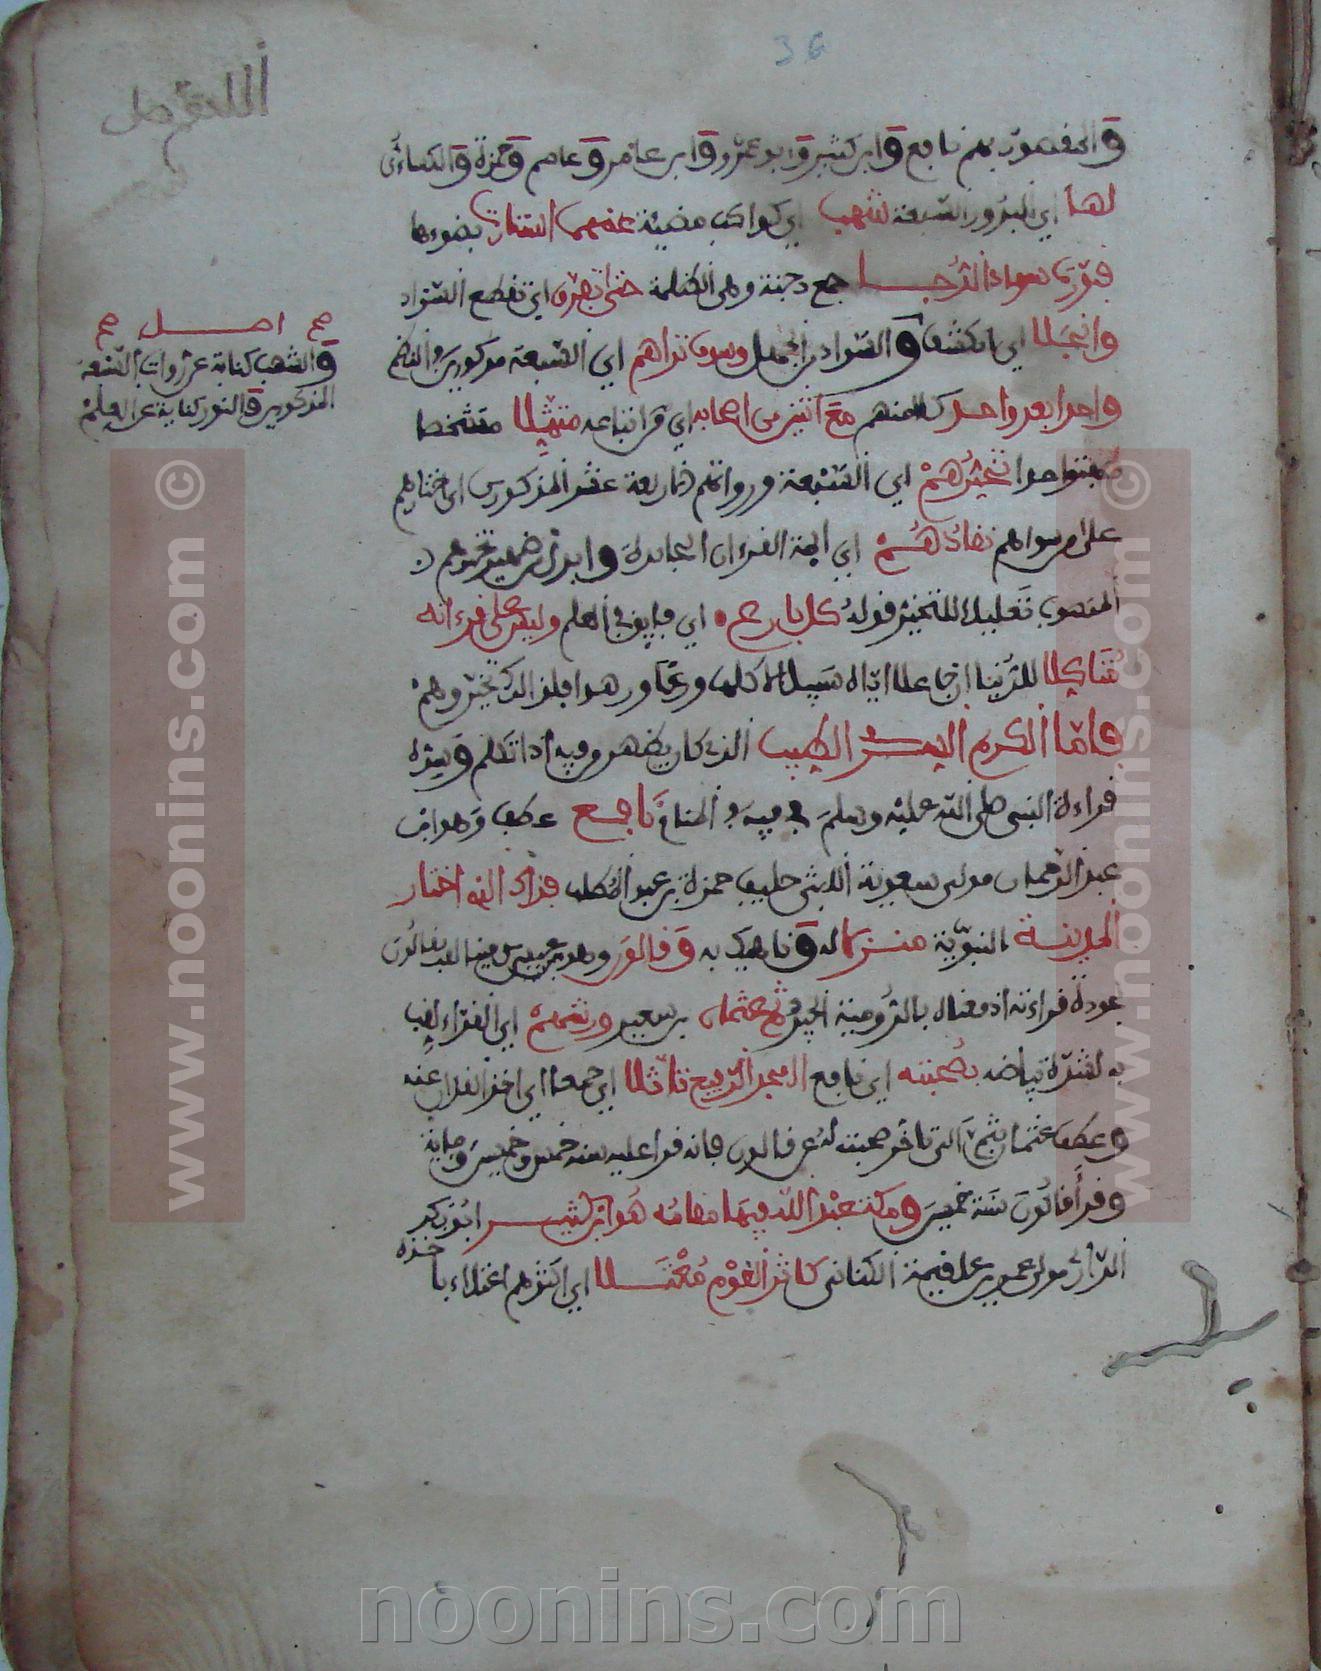 36
اللهم صل
والمقصود بهم نافع وابن كثير وابو عمرو وابن عامر وعاصم وحمزة والكساءى
لها اي للبدور السبعة شهب اي كواكب مضيئة عنها استنارت بضوءها
فنورت سواد الدجا جمع دجنة وهى الظلمة حتى تفرق اي تقطع السواد
وانجلا اي انكشف والسواد الجهل وسوف تراهم اي السبعة مذكورين النظم
واحدا بعد واحد كلا منهم مع اثنين من اصحابه اي اتباعه متمثلا متشخصا
تخيرهم اي السبعة ورواتهم الاربعة عشر المذكورين اي اختارهم
على من سواهم نقادهم اي ايمة القرءان الجهابذة وابدل من ضمير تخيرهم
المنصوب تعليلا للتخيير قوله كل بارع اي فايق في العلم وليس على قرءانه
متاكلا للدنيا
فاما الكريم السر الطيب الذى كان يظهر من فيه اذا تكلم وسره
قراءة النبى صلى الله عليه وسلم فى فيه في المنام نافع عطف وهو ابن
عبد الرحمان مولى جعونة الليثى حليف حمزة بن عبد المطلب فذاك الذى اختار
المدينة النبوية منزلا له وناهيك به وقالون وهو عيسى بن مينا لقب بقالون
لجودة قراءته اذ معناه بالرومية الجيد ثم عثمان بن سعيد ورشهم اي القراء لقب
به لشدة بياضه بصحبته اي نافع المجد الرفيع تاثلا اي جمعا اي اخذ القران عنه
وعطف عثمان بثم لتاخر صحبته له عن قالون فانه قرا عليه سنة خمس وخمسين ومايه
وقرأ قالون سنة خمسين ومكة عبد الله فيها مقامه هو ابن كثير ابو بكر
الدارى مولى عمرو بن علقمة الكنانى كاثر القوم معتلا اي اكثرهم اعتلاء باخذه
صح اصل صح
والشهب كناية عن رواة السبعة
المذكورين والنور كناية عن العلم
www.noonins.com ©
www.noonins.com ©
noonins.com